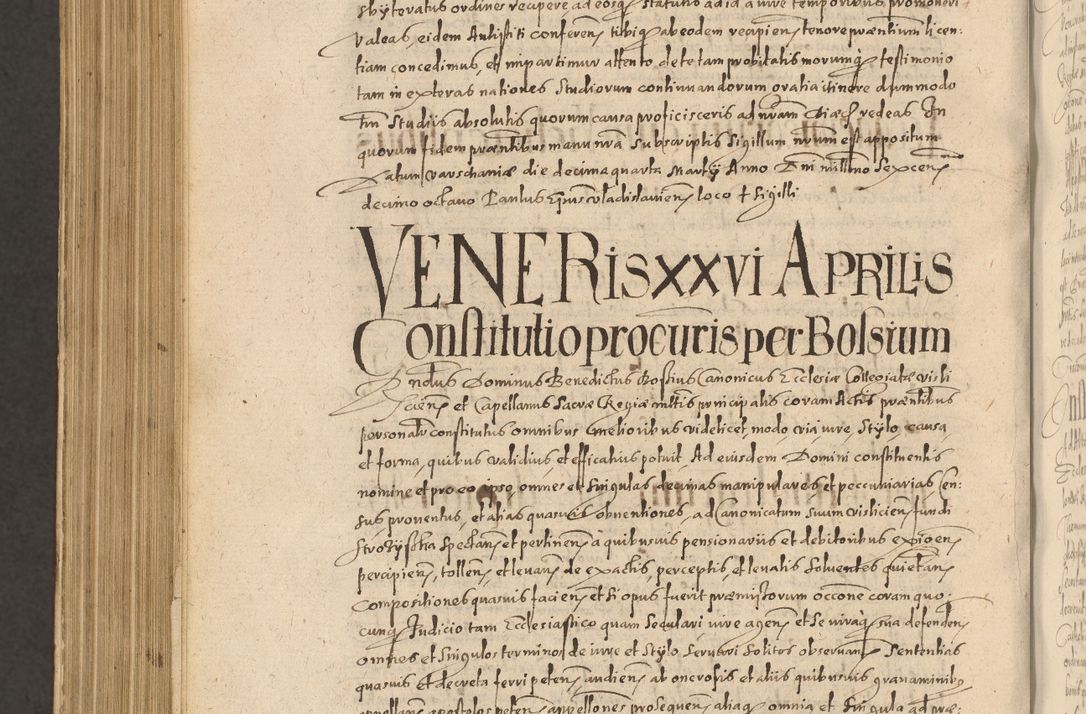 sbyteratus ordines recipere ad eosq statutio adid a iure temporibus promoueri
valeas, eidem Antistiti conferen tibiq ab eodem recipien tenore præntium licen:
tiam concedimus, et impartimur attento de te tam probitatis morumq testimonio
tam in exteras nationes Studiorum continuandorum gratia itinere dummodo
tm Studiis absolutis quorum causa proficisceris ad nram Diæc redeas In
quorum fidem præntibus manu nra Subscriptis Sigillum nrum est appositum
Datum Varschaniæ die decima quarta Martij Anno Dni millmo Sexcen
decimo octauo Paulus Epus Vladislauien loco + Sigilli
VENERis xxvi APRILiS
Constitutio procuris per Bolsium
ndus Dominus Benedictus Canonicus Ecclesiæ Collegiatæ visli
cien et Capellanus Sacræ Regiæ mttis principalis coram Actis præntibus
personalr constitutus omnibus melioribus videlicet, modo via iure, Stylo, causa,
et forma, quibus validius, et efficatius potuit, Ad eiusdem Domini constituentis
nomine et pro eo ipso, omnes et Singulas decimas manipulares et peccuniarias Cen:
sus prouentus, et alias quasuis obuentiones, ad Canonicatum suum vislicien fundi
Spectan et pertinen a quibusuis pensionariis et debitoribus
percipien, tollen, et leuan de exactis, perceptis, et leuatis Soluentes quietan
compositiones quasuis facien et Si opus fuerit præmissorum occone coram quo:
cunq Iudicio tam Ecclesiastico quam Seculari iure agen et Se iuraq sua defenden
omnes et Singulos terminos de iure et Stylo Seruari Solitos obseruan Sententias
quasuis et decreta ferri peten, audien, ab oncrosis et aliis quibusuis grauaminibg
appellan apostolos peten, appellones prosequen, aliaq omnia et Singula ad præ: